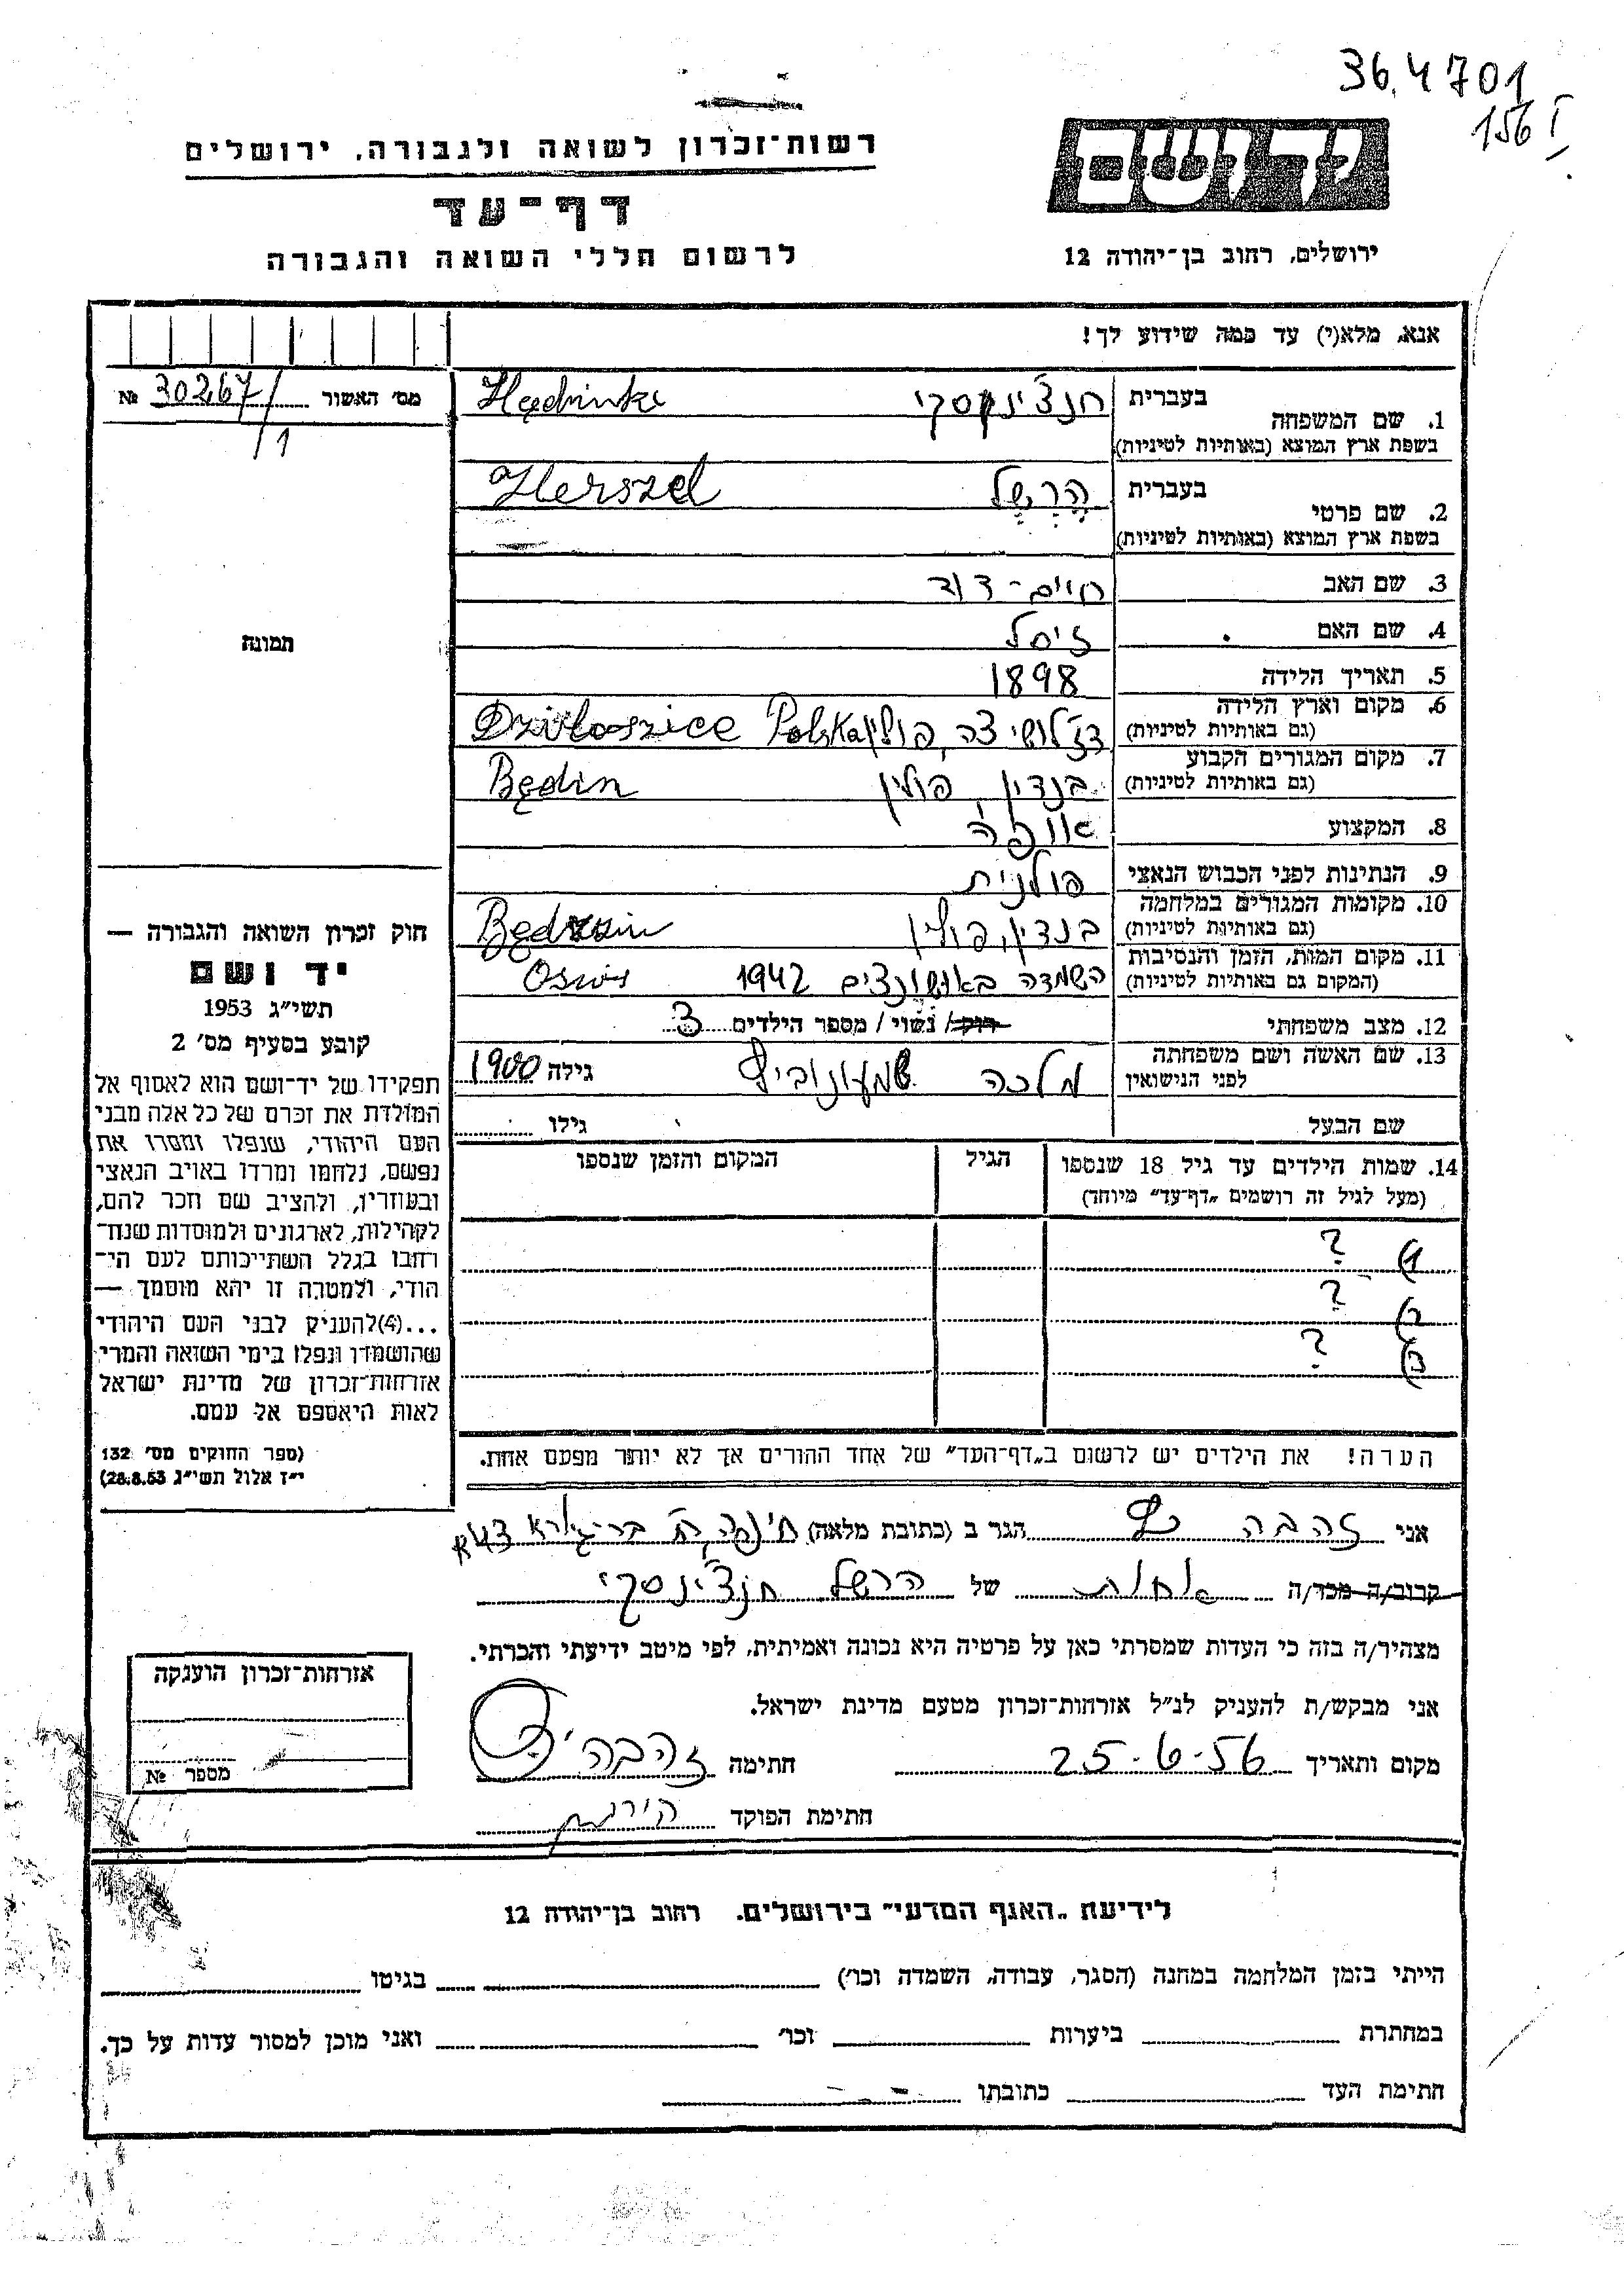 36.4701
156 I
יד ושם
רשות־זכרון לשואה ולגבורה, ירושלים
דף־עד
לרשום חללי השואה והגבורה
ירושלים, רחוב בן־יהודה 12
אנא, מלא(י) עד כמה שידוע לך!
מס' האשור 30267/1 №
1. שם המשפחה
בעברית חנצ'ינסקי
בשפת ארץ המוצא (באותיות לטיניות)
2. שם פרטי
בעברית הרשל Herszel
בשפת ארץ המוצא (באותיות לטיניות)
3. שם האב חיים-דוד
4. שם האם זיסל
תמונה
5. תאריך הלידה 1898
6. מקום וארץ הלידה
(גם באותיות לטיניות) דז'לושיצה, פולין Polska
7. מקום המגורים הקבוע
(גם באותיות לטיניות) בנדין, פולין Będin
8. המקצוע אופה
9. הנתינות לפני הכבוש הנאצי פולנית
10. מקומות המגורים במלחמה
(גם באותיות לטיניות) בנדין, פולין
11. מקום המות, הזמן והנסיבות
(המקום גם באותיות לטיניות) השמדה 1942
12. מצב משפחתי רוק/ נשוי / מספר הילדים 3
13. שם האשה ושם משפחתה
לפני הנישואין מלכה גילה 1900
שם הבעל גילו
14. שמות הילדים עד גיל 18 שנספו הגיל המקום והזמן שנספו
(מעל לגיל זה רושמים „דף־עד" מיוחד)
1) ?
2) ?
3) ?
הערה! את הילדים יש לרשום ב„דף־העד" של אחד ההורים אך לא יותר מפעם אחת.
חוק זכרון השואה והגבורה —
יד ושם
תשי"ג 1953
קובע בסעיף מס' 2
תפקידו של יד־ושם הוא לאסוף אל
המולדת את זכרם של כל אלה מבני
העם היהודי, שנפלו ומסרו את
נפשם, נלחמו ומרדו באויב הנאצי
ובעוזריו, ולהציב שם וזכר להם,
לקהילות, לארגונים ולמוסדות שנח־
רבו בגלל השתייכותם לעם הי־
הודי, ולמטרה זו יהא מוסמך —
...(4)להעניק לבני העם היהודי
שהושמדו ונפלו בימי השואה והמרי
אזרחות־זכרון של מדינת ישראל
לאות היאספם אל עמם.
(ספר החוקים מס' 132
י"ז אלול תשי"ג 28.8.53)
אני זהבה הגר ב (כתובת מלאה)
קרוב/ה מכר/ה אחות של הרשל חנצ'ינסקי
מצהיר/ה בזה כי העדות שמסרתי כאן על פרטיה היא נכונה ואמיתית, לפי מיטב ידיעתי והכרתי.
אני מבקש/ת להעניק לנ"ל אזרחות־זכרון מטעם מדינת ישראל.
מקום ותאריך 25-6-56 חתימה זהבה
חתימת הפוקד
אזרחות־זכרון הוענקה
מספר №
לידיעת „האגף המדעי" בירושלים. רחוב בן־יהודה 12
הייתי בזמן המלחמה במחנה (הסגר, עבודה, השמדה וכו') בגיטו
במחתרת ביערות וכו' ואני מוכן למסור עדות על כך.
חתימת העד כתובתו